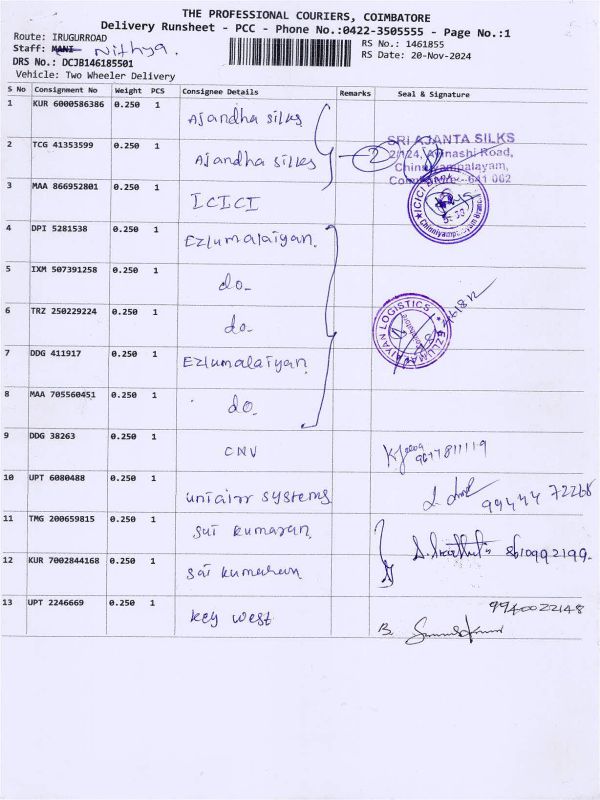 THE PROFESSIONAL COURIERS, COIMBATORE
Delivery Runsheet - PCC - Phone No.:0422-3505555 - Page No.:1
Route: IRUGURROAD
Staff: MANI Nithya.
RS No.: 1461855
DRS No.: DCJB146185501
RS Date: 20-Nov-2024
Vehicle: Two Wheeler Delivery
S No Consignment No Weight PCS Consignee Details Remarks Seal & Signature
1 KUR 6000586386 0.250 1 Ajandha silks
2 TCG 41353599 0.250 1 Ajandha silks 2
SRI AJANTA SILKS
2/124, Avinashi Road,
Chinniyampalayam,
641 062
3 MAA 866952801 0.250 1 ICICI
ICICI BANK
Chinniyampalayam Branch
4 DPI 5281538 0.250 1 Ezlumalaiyan.
5 IXM 507391258 0.250 1 do-
6 TRZ 250229224 0.250 1 do-
EZLUMALAIYAN LOGISTICS
7 DDG 411917 0.250 1 Ezlumalaiyan.
8 MAA 705560451 0.250 1 do-
9 DDG 38263 0.250 1 CNV
9677811119
10 UPT 6080488 0.250 1 systems
99444 72268
11 TMG 200659815 0.250 1 sai kumaran.
8610992199.
12 KUR 7002844168 0.250 1 sai kumaran
13 UPT 2246669 0.250 1 key west
9940022148
B.